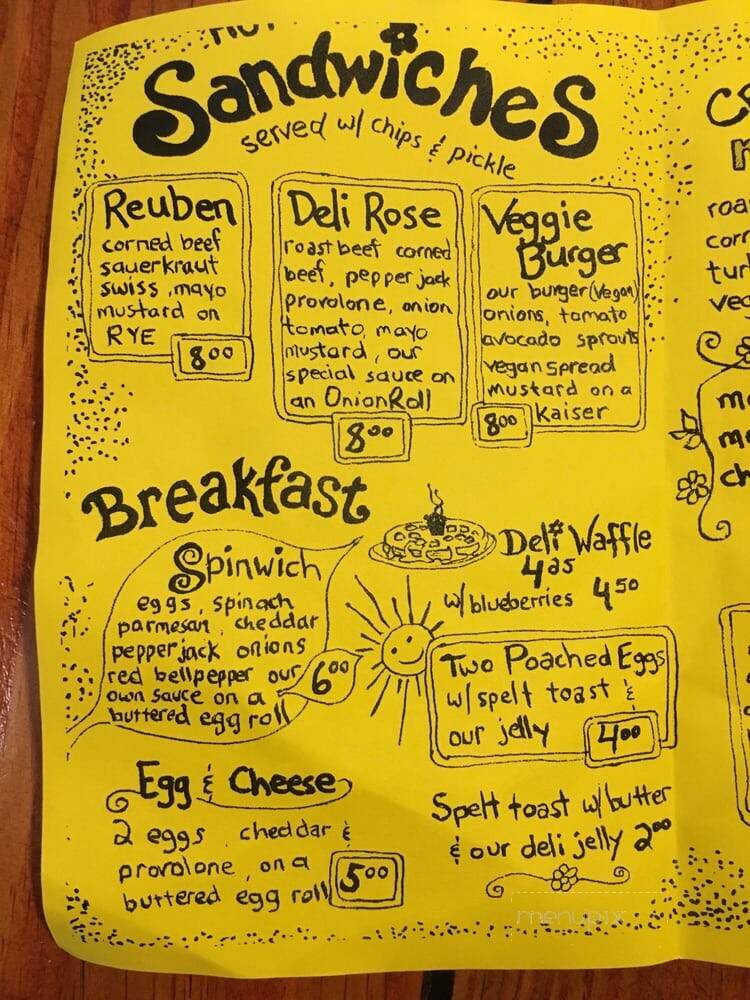 HOT
Sandwiches
served w/ chips & pickle
Reuben
corned beef
sauerkraut
swiss, mayo
mustard on
RYE
8⁰⁰
Deli Rose
roast beef corned
beef, pepper jack
provolone, onion
tomato, mayo
mustard, our
special sauce on
an Onion Roll
8⁰⁰
Veggie
Burger
our burger (vegan)
onions, tomato
avocado sprouts
vegan spread
mustard on a
Kaiser
8⁰⁰
Breakfast
Spinwich
eggs, spinach
parmesan, cheddar
pepperjack onions
red bellpepper our
own sauce on a
buttered egg roll
6⁰⁰
Deli Waffle
4²⁵
w/ blueberries 4⁵⁰
Two Poached Eggs
w/ spelt toast &
our jelly
4⁰⁰
Egg & Cheese
2 eggs, cheddar &
provolone, on a
buttered egg roll
5⁰⁰
Spelt toast w/ butter
& our deli jelly 2⁰⁰
menupix